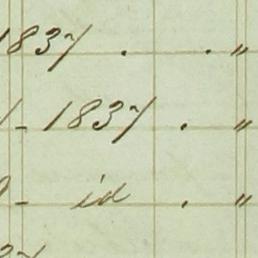 1837 . . "
- 1837 . "
- id . "